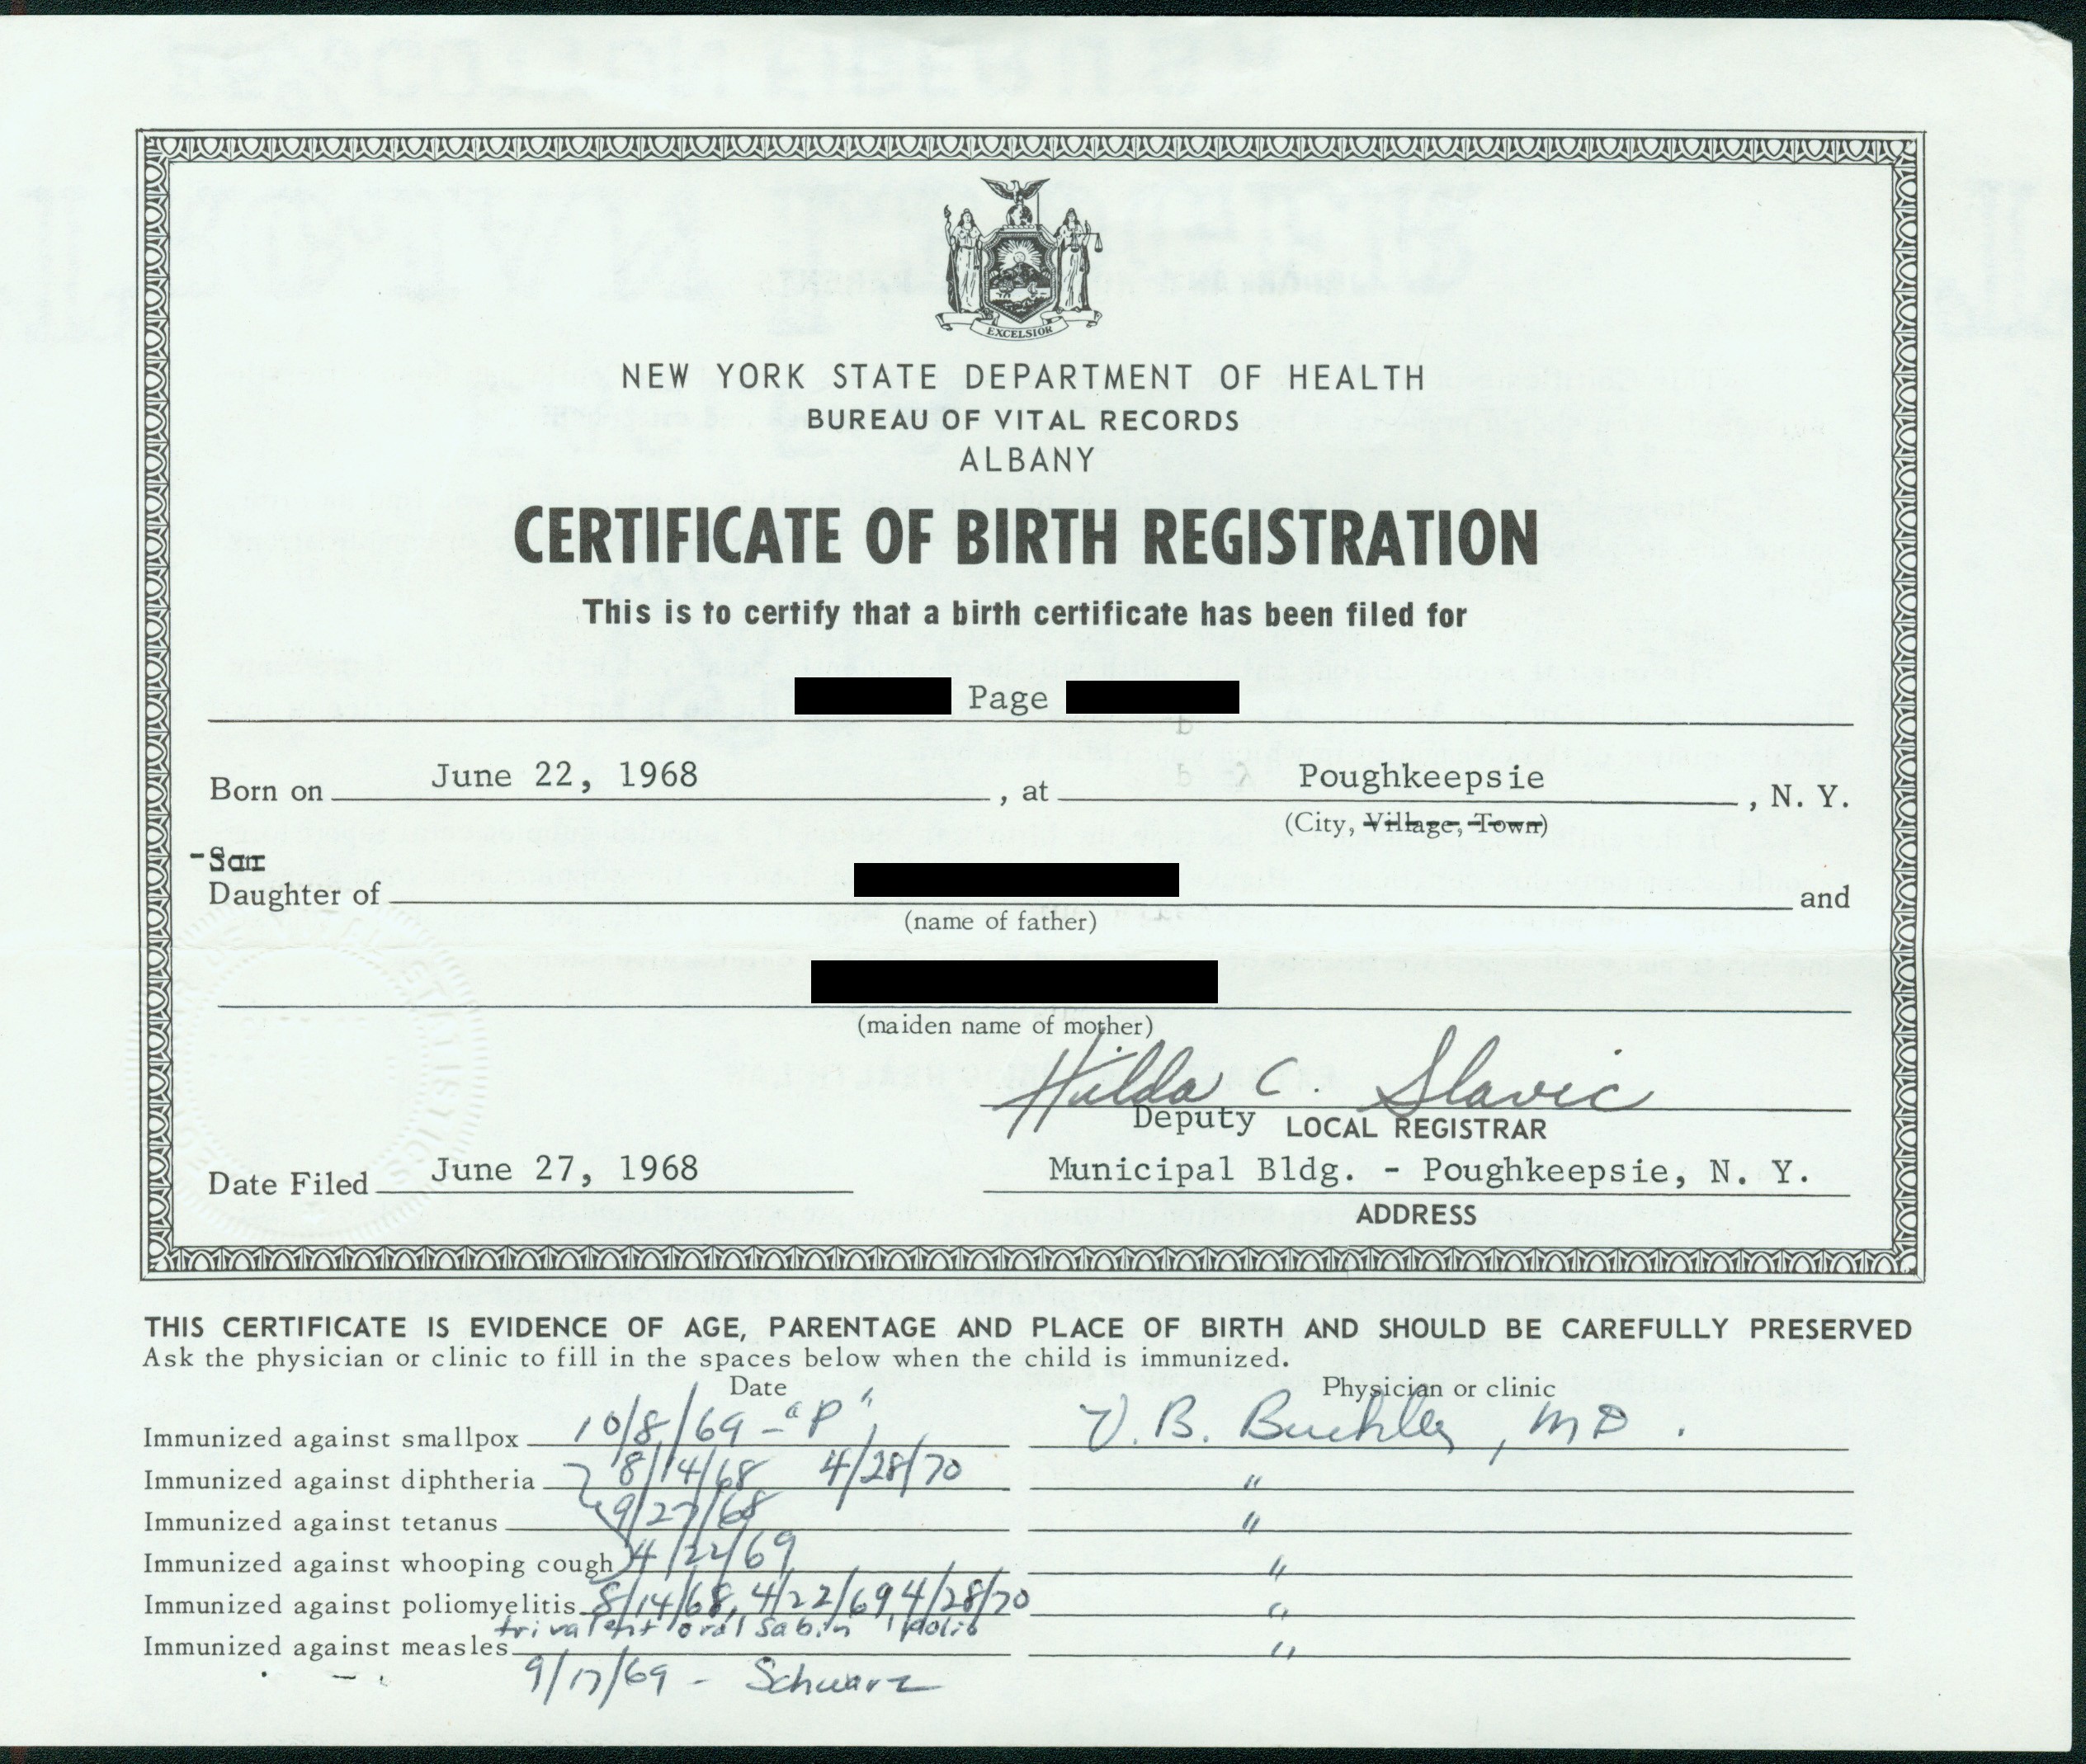 EXCELSIOR
NEW YORK STATE DEPARTMENT OF HEALTH
BUREAU OF VITAL RECORDS
ALBANY
CERTIFICATE OF BIRTH REGISTRATION
This is to certify that a birth certificate has been filed for
Page
Born on June 22, 1968, at Poughkeepsie, N. Y.
(City, Village, Town)
Son
Daughter of and
(name of father)
(maiden name of mother)
Hilda C. Slavic
Deputy LOCAL REGISTRAR
Date Filed June 27, 1968 Municipal Bldg. - Poughkeepsie, N. Y.
ADDRESS
THIS CERTIFICATE IS EVIDENCE OF AGE, PARENTAGE AND PLACE OF BIRTH AND SHOULD BE CAREFULLY PRESERVED
Ask the physician or clinic to fill in the spaces below when the child is immunized.
Date Physician or clinic
Immunized against smallpox 10/8/69 - "P" V. B. , MD.
Immunized against diphtheria 8/14/68 4/28/70 "
Immunized against tetanus 9/27/68 "
Immunized against whooping cough 4/22/69 "
Immunized against poliomyelitis 8/14/68, 4/22/69 4/28/70 "
trivalent oral Sabin polio
Immunized against measles "
9/17/69 - Schwarz